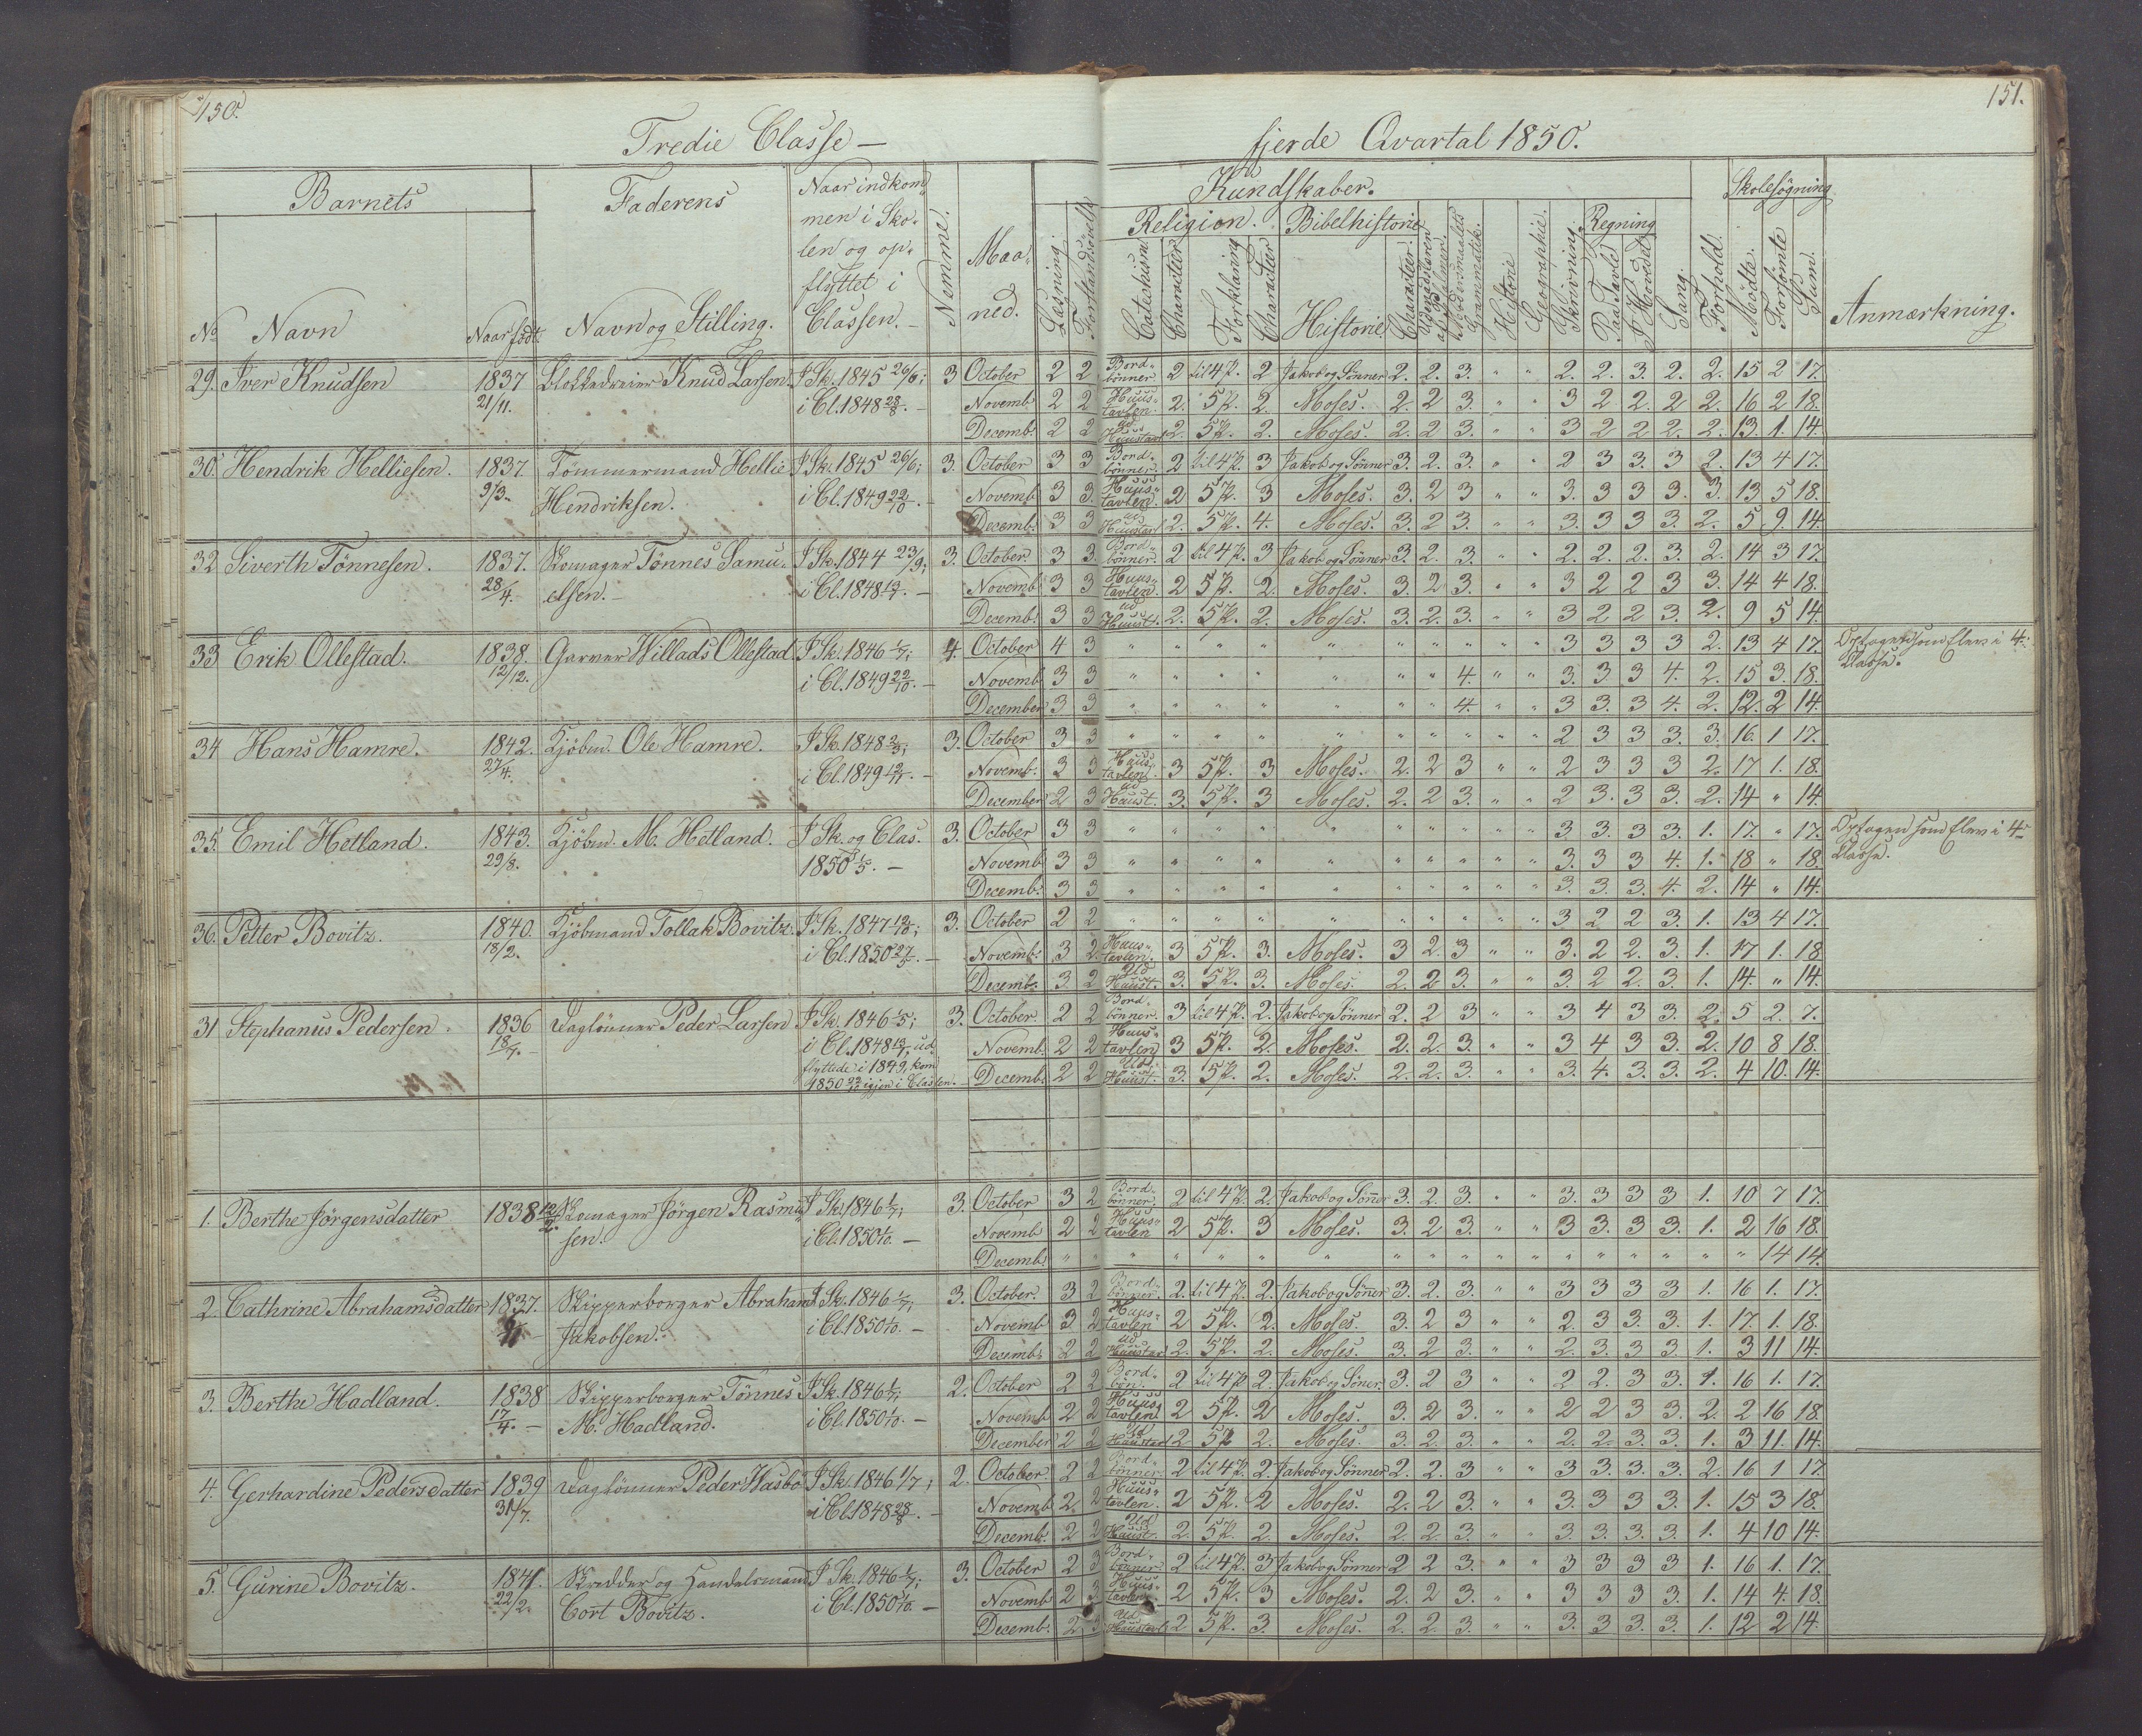 150.
151.
Tredie Classe — fjerde Qvartal 1850.
Barnets
Faderens
Naar indkom
men i Sko-
len og op-
flyttet i
Classen. -
Nemme.
Maa-
ned.
Kundskaber.
Skolesøgning
Religion. Bibelhistorie Regning
No Navn Naar født Navn og Stilling.
Læsning. Catechism. Character Forklaring Character Historie Character. Historie Geographie. Skrivning. Paa Tavle I Hovedet Sang. Forhold. Mødte. Forsømte Sum. Anmærkning.
29. Iver Knudsen 1837 Blokkedreier Knud Larsen. I Sk. 1845 26/6; 3 October 2 2 Bord- bønner 2 til 4 P. 2 Jakob og Sønner 2. 2. 3. " " 2. 2. 3. 2. 2. 15 2 17.
21/11. i Cl. 1848 28/8. - Novemb. 2 2 Huus- tavlen. 2. 5 P. 2. Moses. 2. 2 3. " " 3 2 2. 2 2. 16 2 18.
Decemb. 2 2 ud Huustavl 2. 5 P. 2. Moses. 2. 2 3. " " 3 2 2 2. 2. 13. 1. 14.
30. Hendrik Helliesen. 1837. Tømmermand Hellie I Sk. 1845 26/6; 3. October 3 3 Bord- bønner. 2 til 4 P. 3 Jakob og Sønner 3. 2. 3. " " 2 3 3. 3 2. 13 4 17.
9/3. Hendriksen. i Cl. 1849 22/10. - Novemb. 3 3. Huus- tavlen. 2 5 P. 3 Moses. 3. 2 3 " " 3. 3 3 3. 3. 13 5 18.
Decemb. 3 3 ud Huustavl 2. 5 P. 4. Moses. 3. 2 3. " " 3. 3 3 3. 2. 5 9. 14.
32 Siverth Tønnesen. 1837. Skomager Tønnes Samu- I Sk. 1844 23/9; 3. October. 3 3. Bord- bønner. 2 til 4 P. 3 Jakob og Sønner 3. 2. 3. " " 2. 2. 2. 3. 2. 14 3 17.
28/4. elsen. - i Cl. 1848 13/7. - Novemb. 3 3 Huus- tavlen. 2 5 P. 2. Moses. 3. 2 3. " " 3 2 2 3 3. 14 4 18.
Decemb. 3 3 ud Huust. 2. 5 P. 2. Moses. 3. 2. 3. " " 3 2 2 3. 2. 9 5 14.
33 Erik Ollestad. 1838. Garver Willads Ollestad I Sk. 1846 1/7; 4. October 4 3 " " " " " " " " " " 3 3 3 3 2. 13 4 17. Optagen som Elev i 4.
12/12. i Cl. 1849 22/10. - Novemb. 3 3 " " " " " " " 4. " " 3. 3. 3 4. 2. 15 3. 18. Classe.
December 3 3 " " " " " " " 4. " " 3 3. 3 4. 2. 12. 2 14.
34 Hans Hamre. 1842. Kjøbm. Ole Hamre. I Sk. 1848 3. October 3 3 " " " " " " " " " " 2 3 3 3. 3. 16. 1 17.
27/4. i Cl. 1849 12/11. - Novemb. 3 3 Huus- tavlen. 3 5 P. 3 Moses. 2. 2 3 " " 2 3 3 3 2. 17 1. 18.
December 2 3 ud Huust. 3. 5 P. 3 Moses. 2. 2 3. " " 2 3. 3 3. 2. 14 " 14.
35. Emil Hetland. 1843. Kjøbm. M. Hetland. I Sk. og Clas. 3. October 3 3 " " " " " " " " " " 3 3. 3 3. 1. 17. " 17. Optagen som Elev i 4.
29/8. 1850 1/5. - Novemb. 3 3 " " " " " " " " " " 3. 3 3 4. 1. 18 " 18. Classe.
Decemb. 3 3 " " " " " " " " " " 3. 3. 3. 4. 2. 14 " 14.
36. Petter Bovitz. 1840. Kjøbmand Tollak Bovitz. I Sk. 1847 13/10; 3. October 2 2 " " " " " " " " " " 3 2 2 3. 1. 13 4 17.
18/2. i Cl. 1850 27/5. - Novemb. 3 2. Huus- tavlen. 3 5 P. 3. Moses. 3 2. 3 " " 3. 2 2. 3. 1. 17 1. 18
Decemb. 3. 2 Ud Huust. 3. 5 P. 3. Moses. 2. 2 3. " " 3. 2 2. 3. 1. 14. " 14.
31 Stephanus Pedersen. 1836 Daglønner Peder Larsen I Sk. 1846 1/5; 3. October. 2 2 Bord- bønner. 3 til 4 P. 2. Jakob og Sønner 2. 2 3 " " 3 4 3 3. 2. 5 2. 7.
18/7. - i Cl. 1848 13/7, ud- Novemb. 2 2 Huus- tavlen 3 5 P. 2. Moses. 2. 2. 3. " " 3 4 3 3. 2. 10 8 18.
flyttede i 1849, kom
1850 igjen i Classen. Decemb. 2 2 Ud Huust. 3. 5 P. 2. Moses. 2. 2. 3. " " 3. 4. 3. 3. 2. 4 10. 14.
1. Berthe Jørgensdatter 1838 Skomager Jørgen Rasmus- I Sk. 1846 1/7; 3. October 3 2 Bord- bønner. 2 til 4 P. 2. Jakob og Sønner 3. 2. 3. " " 3. 3 3 3 1. 10 7 17.
sen. i Cl. 1850 1/10. - Novemb. 2 2 Huus- tavlen 2 5 P. 3 Moses. 3. 2 3. " " 3 3. 3. 3. 1. 2 16 18.
Decemb. " " " " " " " " " " " " " " " " " " 14 14.
2. Cathrine Abrahamsdatter 1837. Skipperborger Abraham I Sk. 1846 1/7; 3. October. 3 2 Bord- bønner. 2. til 4 P. 2. Jakob og Sønner 3. 2. 3. " " 3 3 3 3 1. 16 1. 17.
Jakobsen. i Cl. 1850 1/10. - Novemb. 3 2 Huus- tavlen 2 5 P. 2. Moses. 3. 2 3 " " 2. 3. 3. 3. 1. 17. 1. 18.
Decemb. 2 2 ud Huustavl 2. 5 P. 2. Moses. 3. 2 3. " " 2. 3. 3 3. 1. 3 11 14.
3. Berthe Hadland. 1838 Skipperborger Tønnes I Sk. 1846 1/7; 2. October 2 2 Bord- bøn. 2 til 4 P. 2. Jakob og Sønner 3. 2 3 " " 2 2. 3 3. 1. 16 1. 17.
17/4. - M. Hadland. i Cl. 1850 1/10. - Novemb. 2 2 Huus- tavlen 2 5 P. 2 Moses. 3. 2 3. " " 2 2 3 3. 2. 2 16 18.
December 2 2 Ud Huustavl 2 5 P. 2. Moses. 3. 2. 3. " " 2. 2. 3. 3. 1. 3 11. 14.
4. Gerhardine Pedersdatter 1839 Daglønner Peder Hasbo I Sk. 1846 1/7; 2. October. 2 2 Bord- bønner 2 til 4 P. 2. Jakob og Sønner 2. 2. 3 " " 3 3. 3. 3. 2. 16 1 17.
31/7. i Cl. 1848 28/8. - Novemb. 2. 2 Huus- tavlen. 2 5 P. 2 Moses. 2. 2 3. " " 3. 3 3 3. 1. 15 3 18.
Decemb. 2 2 Ud Huust. 2. 5 P. 2. Moses. 2. 2. 3. " " 3. 3. 3. 3. 1. 4 10. 14.
5. Gurine Bovitz. 1841. Skrædder og Handelsmann I Sk. 1846 1/7; 3. October 2 3 Bord- bønner 2 til 4 P. 3 Jakob og Sønner 2 2 3. " " 3 3 3 3 1. 16 1. 17.
22/2. Cort Bovitz. i Cl. 1850 1/10. - Novemb. 2 3. Huus- tavlen 2 5 P. 3 Moses. 2. 2 3. " " 3 3 3 3. 1. 14 4. 18.
Decemb. 2. 3 Ud. Huustavl. 2 5 P. 3. Moses. 2. 2. 3. " " 3. 3 3. 3. 1. 12 2 14.